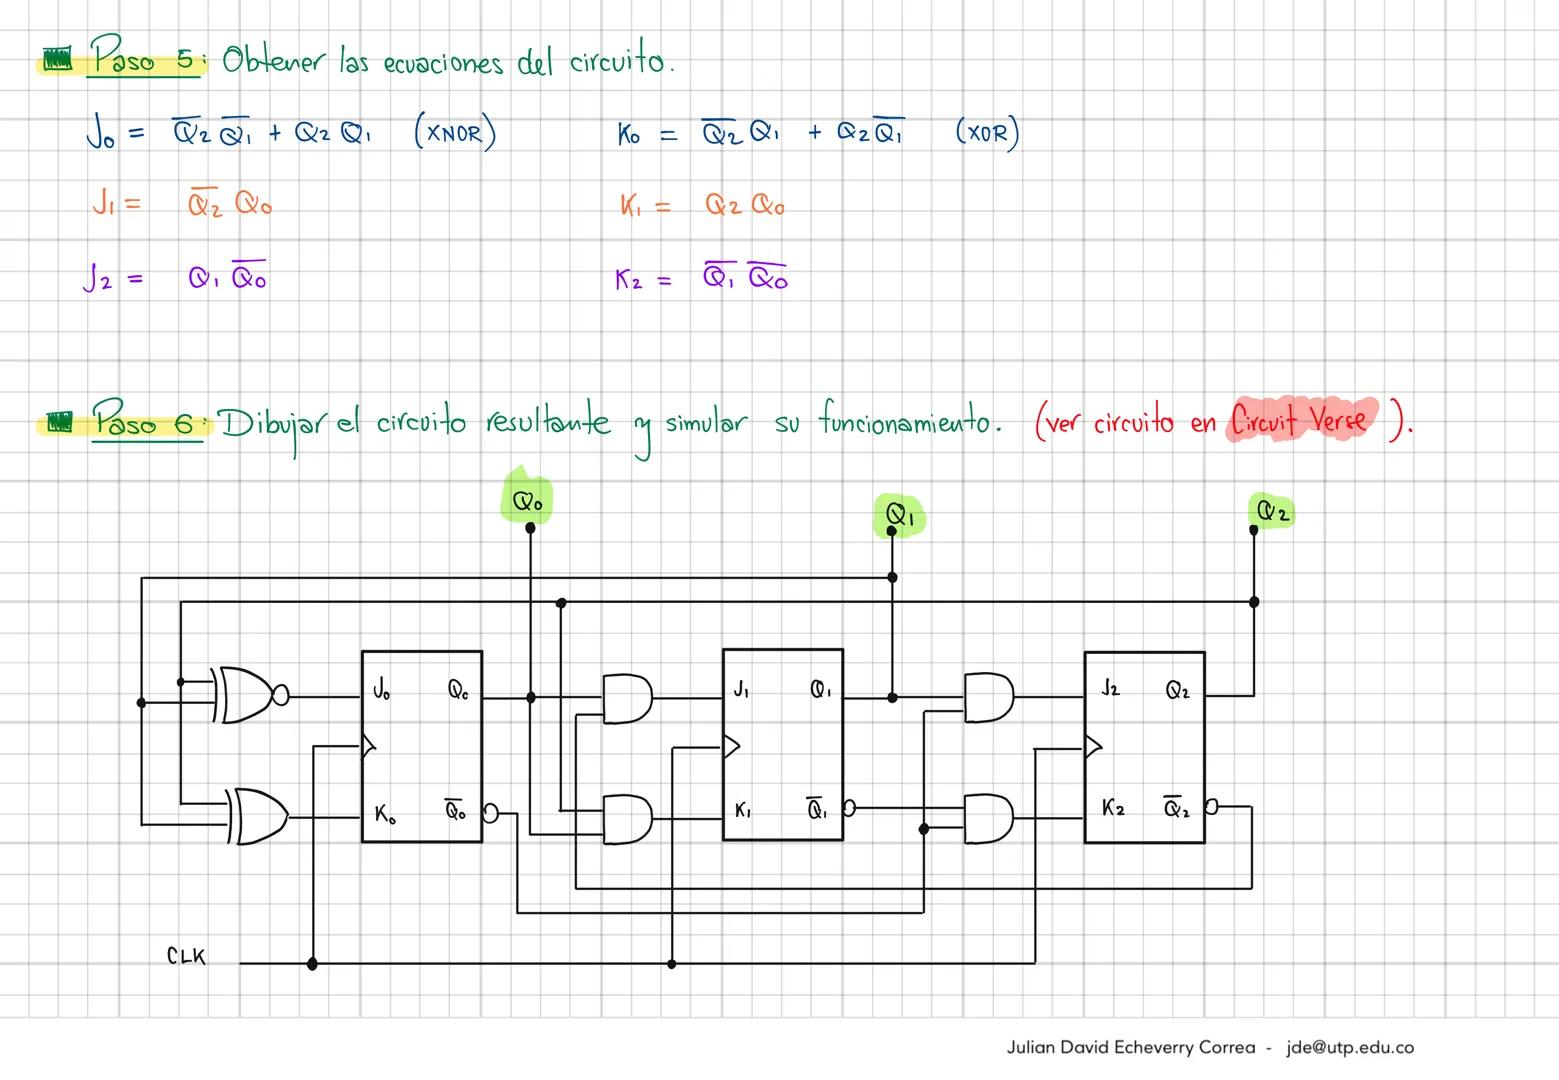 Paso 5: Obtener las ecuaciones del circuito.
J₀ = Q̅₂ Q̅₁ + Q₂ Q₁ (XNOR) K₀ = Q̅₂ Q₁ + Q₂ Q̅₁ (XOR)
J₁ = Q̅₂ Q₀ K₁ = Q₂ Q₀
J₂ = Q₁ Q̅₀ K₂ = Q̅₁ Q̅₀
Paso 6: Dibujar el circuito resultante y simular su funcionamiento. (ver circuito en Circuit Verse).
Q₀ Q₁ Q₂
J₀ Q₀ J₁ Q₁ J₂ Q₂
K₀ Q̅₀ K₁ Q̅₁ K₂ Q̅₂
CLK
Julian David Echeverry Correa - jde@utp.edu.co